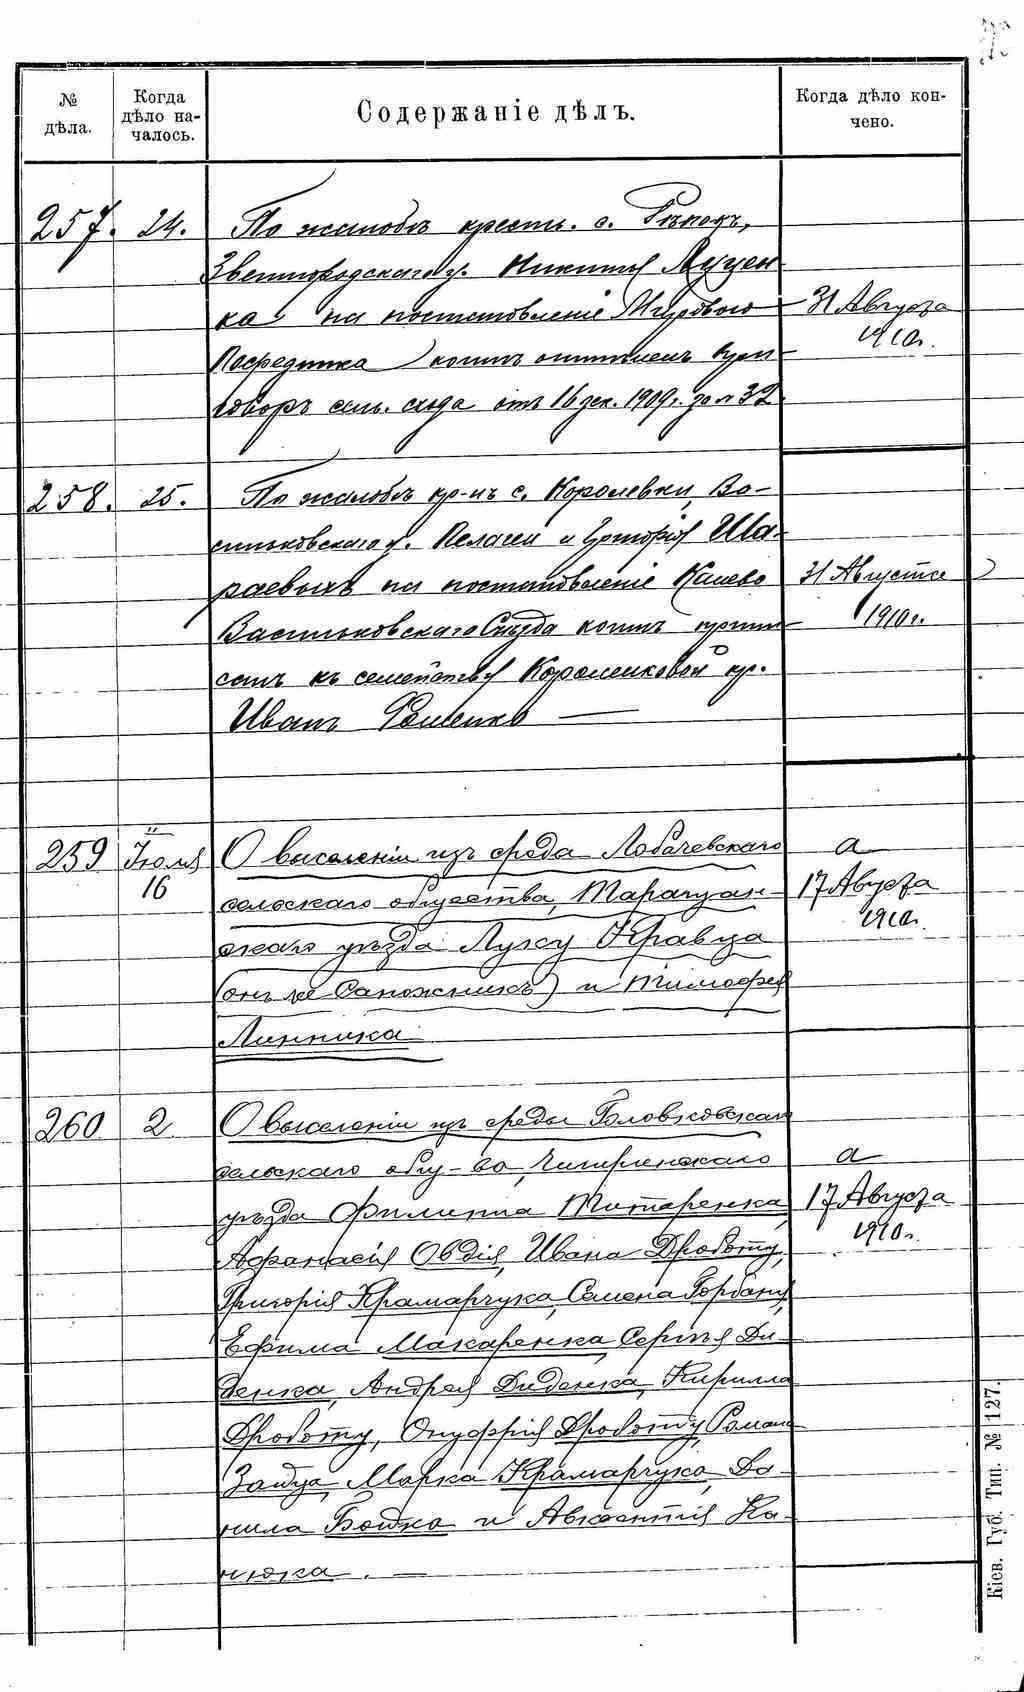 № дѣла.
Когда дѣло на-
чалось.
Содержаніе дѣлъ.
Когда дѣло кон-
чено.
257. 24. По жалобѣ крестн. с. Рѣпокъ,
Звенигородскаго у. Никиты Луцен-
ка на постановленіе Мирового
Посредника коимъ отмѣненъ при-
говоръ сель. схода отъ 16 дек. 1909 г. за № 32
31 Августа
1910 г.
258. 25. По жалобѣ кр-нъ с. Королевки, Ва-
сильковскаго у. Пелагеи и Григорія Ша-
раевыхъ на постановленіе Кіево
Васильковскаго Съѣзда коимъ припи-
санъ къ семейству Короленковой кр.
Иванъ Роменко —
31 Августа
1910 г.
259 Іюля
16
О выселеніи изъ среды Лобачевскаго
сельскаго общества, Таращан-
скаго уѣзда Луку Кравца
(онъ же Сапожникъ) и Тимофея
Линника
а
17 Августа
1910 г.
260 2 О выселеніи изъ среды Головковскаго
сельскаго общ-ва, Чигиринскаго
уѣзда Филиппа Титаренка,
Афанасія Овдія, Ивана Дроботу,
Григорія Крамарчука, Семена Горбаня,
Ефима Макаренка Сергѣя Ди-
денка, Андрея Диденка, Кирилла
Дроботу, Онуфрія Дроботу, Романа
Зайца, Марка Крамарчука, Да-
нила Бойка и Авксентія Ка-
нюка. —
а
17 Августа
1910 г.
Кіев. Губ. Тип. № 127.